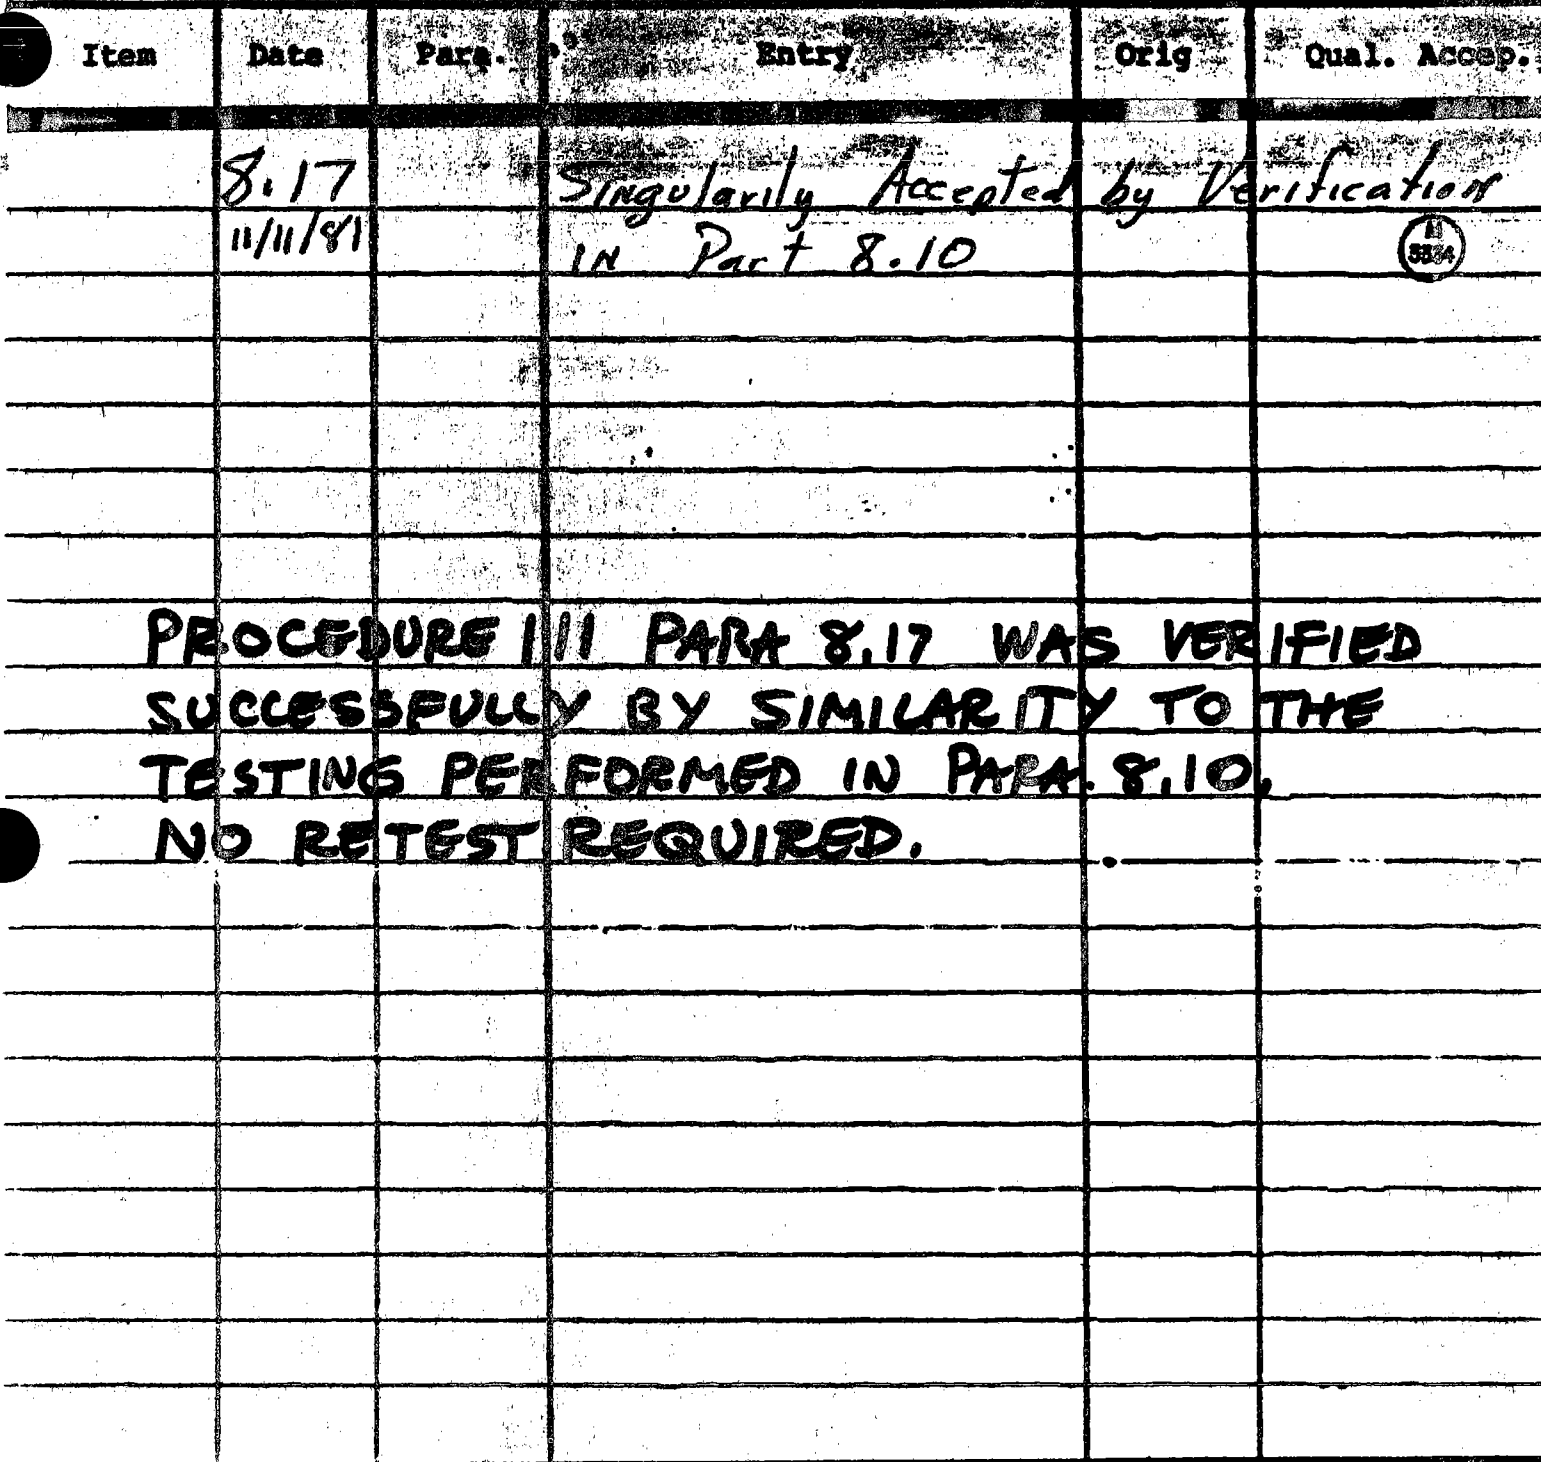 Item Date Para. Entry Orig Qual. Accep.
8.17 Singularily Accepted by Verification
11/11/81 IN Part 8.10
PROCEDURE 1111 PARA 8.17 WAS VERIFIED
SUCCESSFULLY BY SIMILARITY TO THE
TESTING PERFORMED IN PARA. 8.10.
NO RETEST REQUIRED.